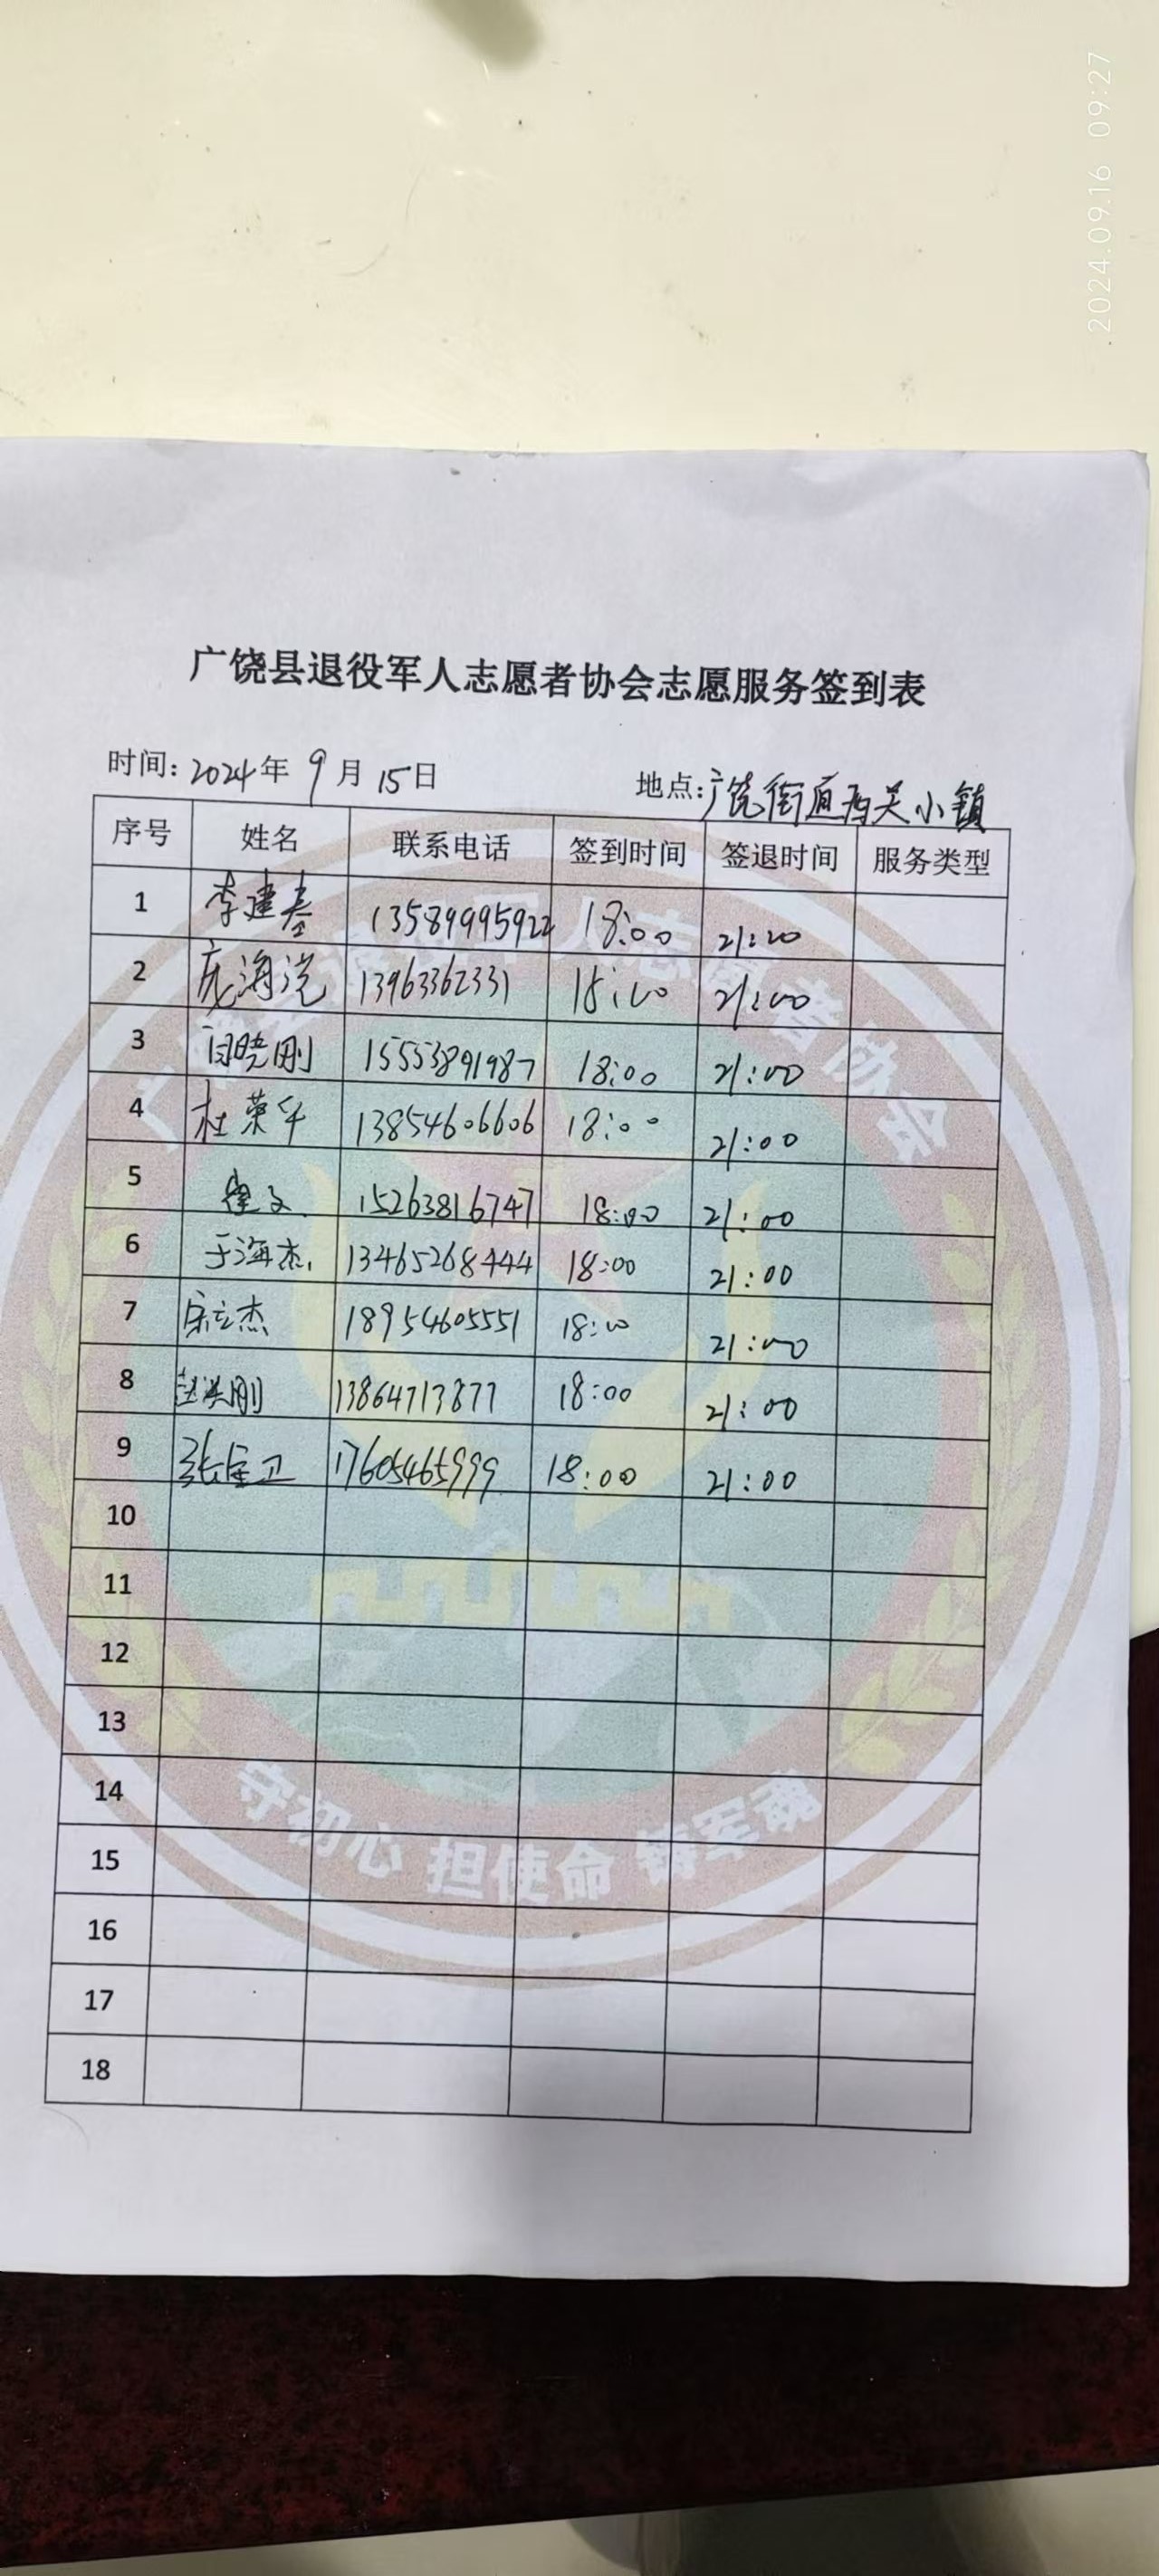 2024.09.16 09:27
广饶县退役军人志愿者协会志愿服务签到表
时间: 2024年 9月 15日 地点: 广饶街道西关小镇
序号 姓名 联系电话 签到时间 签退时间 服务类型
1 李建基 13589995922 18:00 21:00
2 庞海 13963362331 18:00 21:00
3 晓刚 15553891987 18:00 21:00
4 杜荣 13854606606 18:00 21:00
5 崔文 15263816747 18:00 21:00
6 于海杰 13465268444 18:00 21:00
7 宋立杰 18954605551 18:00 21:00
8 赵洪刚 13864713877 18:00 21:00
9 张宝卫 17605465999 18:00 21:00
10
11
12
13
14
15
16
17
18
守初心 担使命 铸军魂